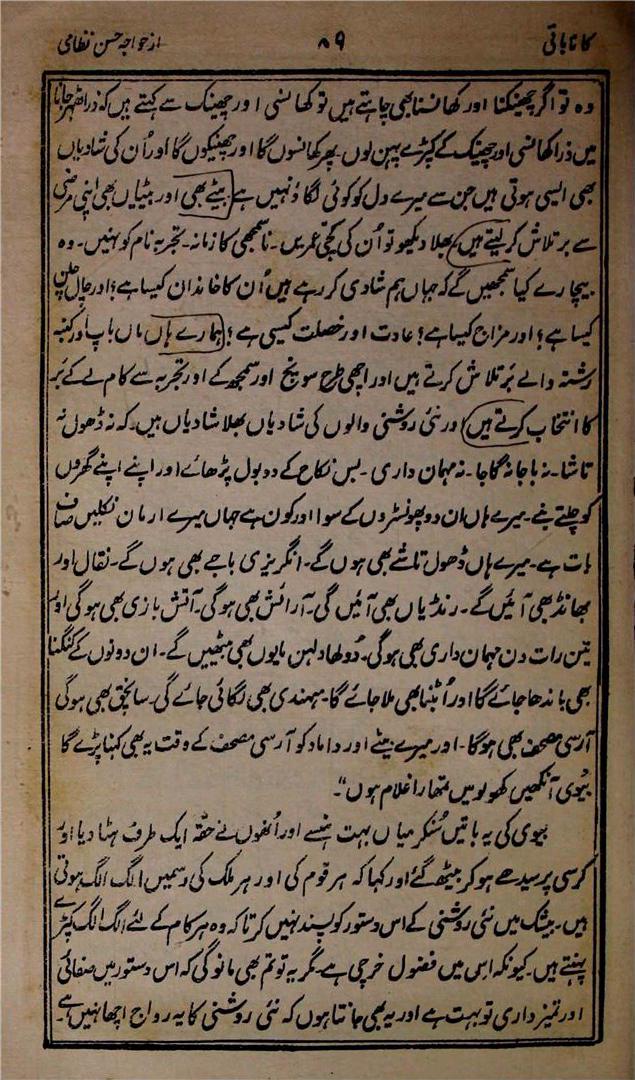 کانا باتی ۸۹ از خواجہ حسن نظامی
وہ تو اگر چھینکنا اور کھانسنا بھی چاہتے ہیں تو کھانسی اور چھینک سے کہتے ہیں کہ ذرا ٹھہر جانا
میں ذرا کھانسی اور چھینک کے کپڑے پہن لوں۔ پھر کھانسوں گا اور چھینکوں گا اور اُن کی شادیاں
بھی ایسی ہوتی ہیں جن سے میرے دل کو کوئی لگاؤ نہیں ہے بیٹے بھی اور بیٹیاں بھی اپنی مرضی
سے بر تلاش کر لیتے ہیں بھلا دیکھو تو اُن کی کچی عمریں۔ ناسمجھی کا زمانہ۔ تجربہ نام کو نہیں۔ وہ
بیچارے کیا سمجھیں گے کہ جہاں ہم شادی کر رہے ہیں اُن کا خاندان کیسا ہے؟ اور چال چلن
کیسا ہے؟ اور مزاج کیسا ہے؟ عادت اور خصلت کیسی ہے؟ ہمارے ہاں ماں باپ اور کنبہ
رشتہ والے بر تلاش کرتے ہیں اور اچھی طرح سوچ اور سمجھ کے اور تجربہ سے کام لے کے بَر
کا انتخاب کرتے ہیں اور نئی روشنی والوں کی شادیاں بھلا شادیاں ہیں۔ کہ نہ ڈھول نہ
تاشا۔ نہ باجا نہ گاجا۔ نہ مہمان داری۔ بس نکاح کے دو بول پڑھائے اور اپنے اپنے گھروں
کو چلتے بنے۔ میرے ہاں ان دو پھونسڑوں کے سوا اور کون ہے جہاں میرے ارمان نکلیں صاف
بات ہے۔ میرے ہاں ڈھول تاشے بھی ہوں گے۔ انگریزی باجے بھی ہوں گے۔ نقال اور
بھانڈ بھی آئیں گے۔ رنڈیاں بھی آئیں گی۔ آرائش بھی ہوگی۔ آتش بازی بھی ہوگی اور
تین رات دن مہمان داری بھی ہوگی۔ دُولھا دلہن مایوں بھی بیٹھیں گے۔ ان دونوں کے کنگنا
بھی باندھا جائے گا اور اُبٹنا بھی ملا جائے گا۔ مہندی بھی لگائی جائے گی۔ ساچق بھی ہوگی
آرسی مصحف بھی ہوگا۔ اور میرے بیٹے اور داماد کو آرسی مصحف کے وقت یہ بھی کہنا پڑے گا
بیوی آنکھیں کھولو میں تمہارا غلام ہوں"۔
بیوی کی یہ باتیں سُنکر میاں بہت ہنسے اور اُنھوں نے حقہ ایک طرف ہٹا دیا اور
کرسی پر سیدھے ہو کر بیٹھ گئے اور کہا کہ ہر قوم کی اور ہر ملک کی رسمیں الگ الگ ہوتی
ہیں۔ بیشک میں نئی روشنی کے اس دستور کو پسند نہیں کرتا کہ وہ ہر کام کے لئے الگ الگ کپڑے
پہنتے ہیں۔ کیونکہ اس میں فضول خرچی ہے۔ مگر یہ تو تم بھی مانو گی کہ اس دستور میں صفائی
اور تمیز داری تو بہت ہے اور یہ بھی جانتا ہوں کہ نئی روشنی کا یہ رواج اچھا نہیں ہے۔